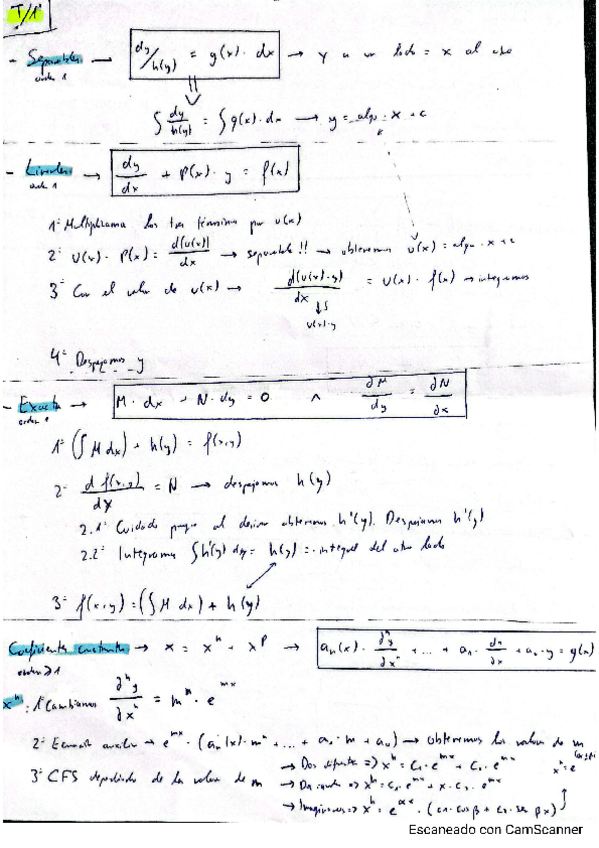 T/1
- Separables → dy/h(y) = g(x) · dx → y a un lado = x al otro
orden 1
∫ dy/h(y) = ∫ g(x) · dx → y = algo · x + c
- Lineales → dy/dx + P(x) · y = f(x)
orden 1
1º Multiplicamos los tres términos por u(x)
2º u(x) · P(x) = d(u(x))/dx → separable!! → obtenemos u(x) = algo · x + c
3º Con el valor de u(x) → d(u(x) · y)/dx = u(x) · f(x) → integramos
u(x) · y
4º Despejamos y
- Exacta → M · dx + N · dy = 0 ∧ ∂M/dy = ∂N/∂x
orden 1
1º (∫ M dx) + h(y) = f(x,y)
2º d f(x,y)/dy = N → despejamos h(y)
2.1º Cuidado porque al derivar obtenemos h'(y). Despejamos h'(y)
2.2º Integramos ∫ h'(y) dy = h(y) = integral del otro lado
3º f(x,y) = (∫ M dx) + h(y)
Coeficientes constantes → x = xʰ + xᴾ → aₙ(x) · ∂ⁿy/∂xⁿ + ... + a₁ · dy/∂x + a₀ · y = g(x)
orden > 1
xʰ: 1º Cambiamos ∂ⁿy/∂xⁿ = mⁿ · e^mx
2º Ecuación auxiliar → e^mx · (aₙ(x) · mⁿ + ... + a₁ · m + a₀) → obtenemos los valores de m
3º CFS dependiendo de los valores de m → Dos distintas => xʰ = c₁ · e^mx + c₂ · e^mx
→ xʰ = c₁ · e^mx + x · c₂ · e^mx
→ Imaginarias => xʰ = e^αx · (c₁ · cos β + c₂ · sen βx)
Escaneado con CamScanner